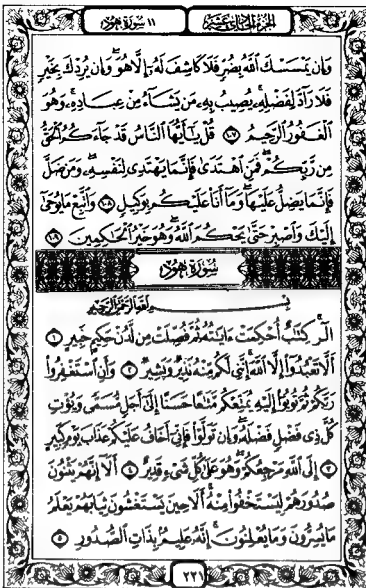 الجزء الحادي عشر
١١ سورة هود
وَإِن يَمْسَسْكَ ٱللَّهُ بِضُرٍّ فَلَا كَاشِفَ لَهُۥٓ إِلَّا هُوَ ۖ وَإِن يُرِدْكَ بِخَيْرٍ
فَلَا رَآدَّ لِفَضْلِهِۦ ۚ يُصِيبُ بِهِۦ مَن يَشَآءُ مِنْ عِبَادِهِۦ ۚ وَهُوَ
ٱلْغَفُورُ ٱلرَّحِيمُ ١٠٧ قُلْ يَٰٓأَيُّهَا ٱلنَّاسُ قَدْ جَآءَكُمُ ٱلْحَقُّ
مِن رَّبِّكُمْ ۖ فَمَنِ ٱهْتَدَىٰ فَإِنَّمَا يَهْتَدِى لِنَفْسِهِۦ ۖ وَمَن ضَلَّ
فَإِنَّمَا يَضِلُّ عَلَيْهَا ۖ وَمَآ أَنَا۠ عَلَيْكُم بِوَكِيلٍ ١٠٨ وَٱتَّبِعْ مَا يُوحَىٰٓ
إِلَيْكَ وَٱصْبِرْ حَتَّىٰ يَحْكُمَ ٱللَّهُ ۚ وَهُوَ خَيْرُ ٱلْحَٰكِمِينَ ١٠٩
سُورَةُ هُودٍ
بِسْمِ ٱللَّهِ ٱلرَّحْمَٰنِ ٱلرَّحِيمِ
الٓر ۚ كِتَٰبٌ أُحْكِمَتْ ءَايَٰتُهُۥ ثُمَّ فُصِّلَتْ مِن لَّدُنْ حَكِيمٍ خَبِيرٍ ١
أَلَّا تَعْبُدُوٓا۟ إِلَّا ٱللَّهَ ۚ إِنَّنِى لَكُم مِّنْهُ نَذِيرٌ وَبَشِيرٌ ٢ وَأَنِ ٱسْتَغْفِرُوا۟
رَبَّكُمْ ثُمَّ تُوبُوٓا۟ إِلَيْهِ يُمَتِّعْكُم مَّتَٰعًا حَسَنًا إِلَىٰٓ أَجَلٍ مُّسَمًّى وَيُؤْتِ
كُلَّ ذِى فَضْلٍ فَضْلَهُۥ ۖ وَإِن تَوَلَّوْا۟ فَإِنِّىٓ أَخَافُ عَلَيْكُمْ عَذَابَ يَوْمٍ كَبِيرٍ
٣ إِلَى ٱللَّهِ مَرْجِعُكُمْ ۖ وَهُوَ عَلَىٰ كُلِّ شَىْءٍ قَدِيرٌ ٤ أَلَآ إِنَّهُمْ يَثْنُونَ
صُدُورَهُمْ لِيَسْتَخْفُوا۟ مِنْهُ ۚ أَلَا حِينَ يَسْتَغْشُونَ ثِيَابَهُمْ يَعْلَمُ
مَا يُسِرُّونَ وَمَا يُعْلِنُونَ ۚ إِنَّهُۥ عَلِيمٌۢ بِذَاتِ ٱلصُّدُورِ ٥
٢٢١